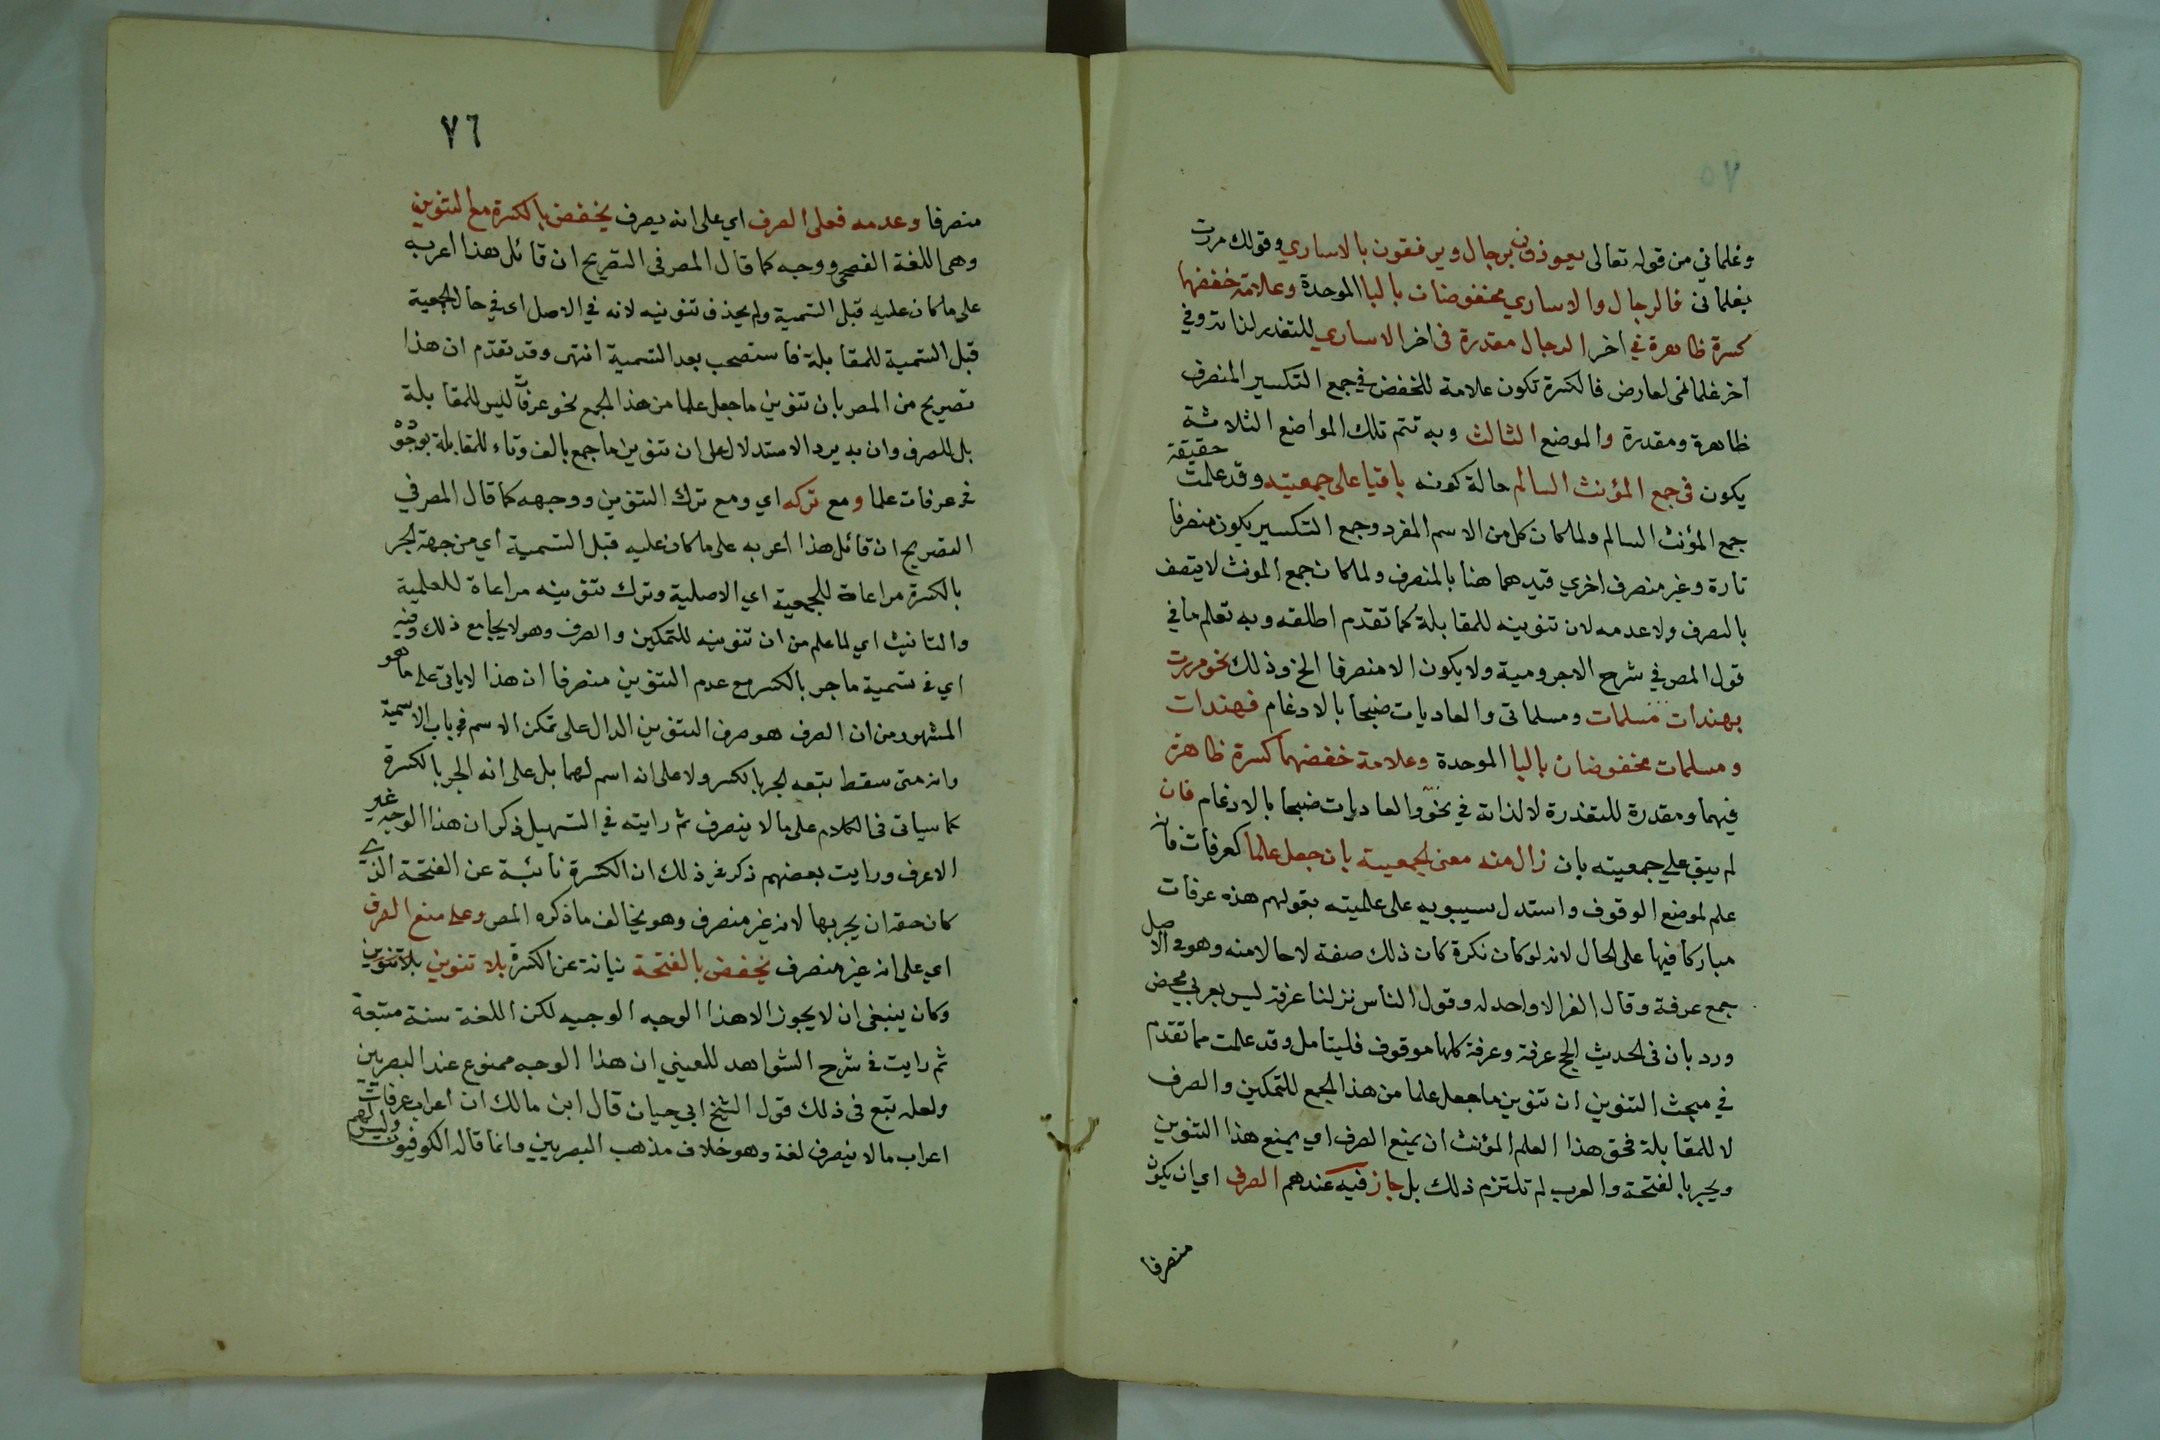 ٥٧
وغلماني من قوله تعالى يعوذون برجال ويرفقون بالاساري وقولك مررت
بغلماني فالرجال والاساري مخفوضان بالباالموحدة وعلامة خفضهما
كسرة ظاهرة في اخر الرجال مقدرة فى اخر الاساري للتعذر لذاته وفي
آخر غلمانى لعارض فالكسرة تكون علامة للخفض في جمع التكسير المنصرف
ظاهرة ومقدرة والموضع الثالث وبه تتم تلك المواضع الثلاثة
يكون فى جمع المؤنث السالم حالة كونه باقيا على جمعيته وقد علمت حقيقة
جمع المؤنث السالم ولما كان كل من الاسم المفرد وجمع التكسير يكون منصرفا
تارة وغير منصرف اخري قيدهما هنا بالمنصرف ولما كان جمع المونث لا يتصف
بالصرف ولا عدمه لان تنوينه للمقابلة كما تقدم اطلقه وبه تعلم ما في
قول المص في شرح الاجرومية ولا يكون الا منصرفا الخ وذلك نحو مررت
بهندات مسلمات ومسلماتى والعاديات ضبحا بالادغام فهندات
ومسلمات مخفوضان بالبا الموحدة وعلامة خفضهما كسرة ظاهرة
فيهما ومقدرة للتعذرة لا لذاته في نحو والعاديات ضبحا بالادغام فان
لم يبق على جمعيته بان زال منه معنى الجمعية بان جعل علما كعرفات فانه
علم لموضع الوقوف واستدل سيبويه على علميته بقولهم هذه عرفات
مباركا فيها على الحال لانه لو كان نكرة كان ذلك صفة لا حالا منه وهو في الاصل
جمع عرفة وقال الفرا لا واحد له وقول الناس نزلنا عرفة ليس بعربي محض
ورد بان فى الحديث الحج عرفة وعرفة كلها موقوف فليتامل وقد علمت مما تقدم
في مبحث التنوين ان تنوين ما جعل علما من هذا الجمع للتمكين والصرف
لا للمقابلة فحق هذا العلم المؤنث ان يمنع الصرف اي يمنع هذا التنوين
ويجر بالفتحة والعرب لم تلتزم ذلك بل جاز فيه عندهم الصرف اي ان يكون
منصرفا
٧٦
منصرفا وعدمه فعلى الصرف اي على انه يصرف يخفض بالكسرة مع التنوين
وهى اللغة الفصحى ووجه كما قال المص فى التصريح ان قائل هذا اعربه
على ما كان عليه قبل التسمية ولم يحذف تنوينه لانه في الاصل اى في حال الجمعية
قبل التسمية للمقابلة فاستصحب بعد التسمية انتهى وقد تقدم ان هذا
تصريح من المص بان تنوين ما جعل علما من هذا الجمع نحو عرفات ليس للمقابلة
بل للصرف وان به يرد الاستدلال على ان تنوين ما جمع بالف وتاء للمقابلة بوجوده
في عرفات علما ومع تركه اي ومع ترك التنوين ووجهه كما قال المص في
التصريح ان قائل هذا اعربه على ما كان عليه قبل التسمية أي من جهة الجر
بالكسرة مراعاة للجمعية اي الاصلية وترك تنوينه مراعاة للعلمية
والتانيث اي لما علم من ان تنوينه للتمكين والصرف وهو لا يجامع ذلك وفيه
اي في تسمية ما جر بالكسر مع عدم التنوين منصرفا ان هذا لا ياتى على ما هو
المشهور من ان الصرف هو صرف التنوين الدال على تمكن الاسم في باب الاسمية
وانه متى سقط تبعه الجر بالكسر ولا على انه اسم لهما بل على انه الجر بالكسرة
كما سياتى فى الكلام على ما لا ينصرف ثم رايته في التسهيل ذكر ان هذا الوجه غير
الاعرف ورايت بعضهم ذكر في ذلك ان الكسرة نائبة عن الفتحة الذي
كان حقه ان يجر بها لانه غير منصرف وهو يخالف ما ذكره المص وعلى منع الصرف
اي على انه غير منصرف يخفض بالفتحة نيابة عن الكسرة بلا تنوين بلا تنوين
وكان ينبغى ان لا يجوز الا هذا الوجه الوجيه لكن اللغة سنة متبعة
ثم رايت فى شرح الشواهد للعيني ان هذا الوجه ممنوع عند البصريين
ولعله تبع فى ذلك قول الشيخ ابي حيان قال ابن مالك ان اعراب عرفات
اعراب ما لا ينصرف لغة وهو خلاف مذهب البصريين وانما قاله الكوفيون وليس لهم